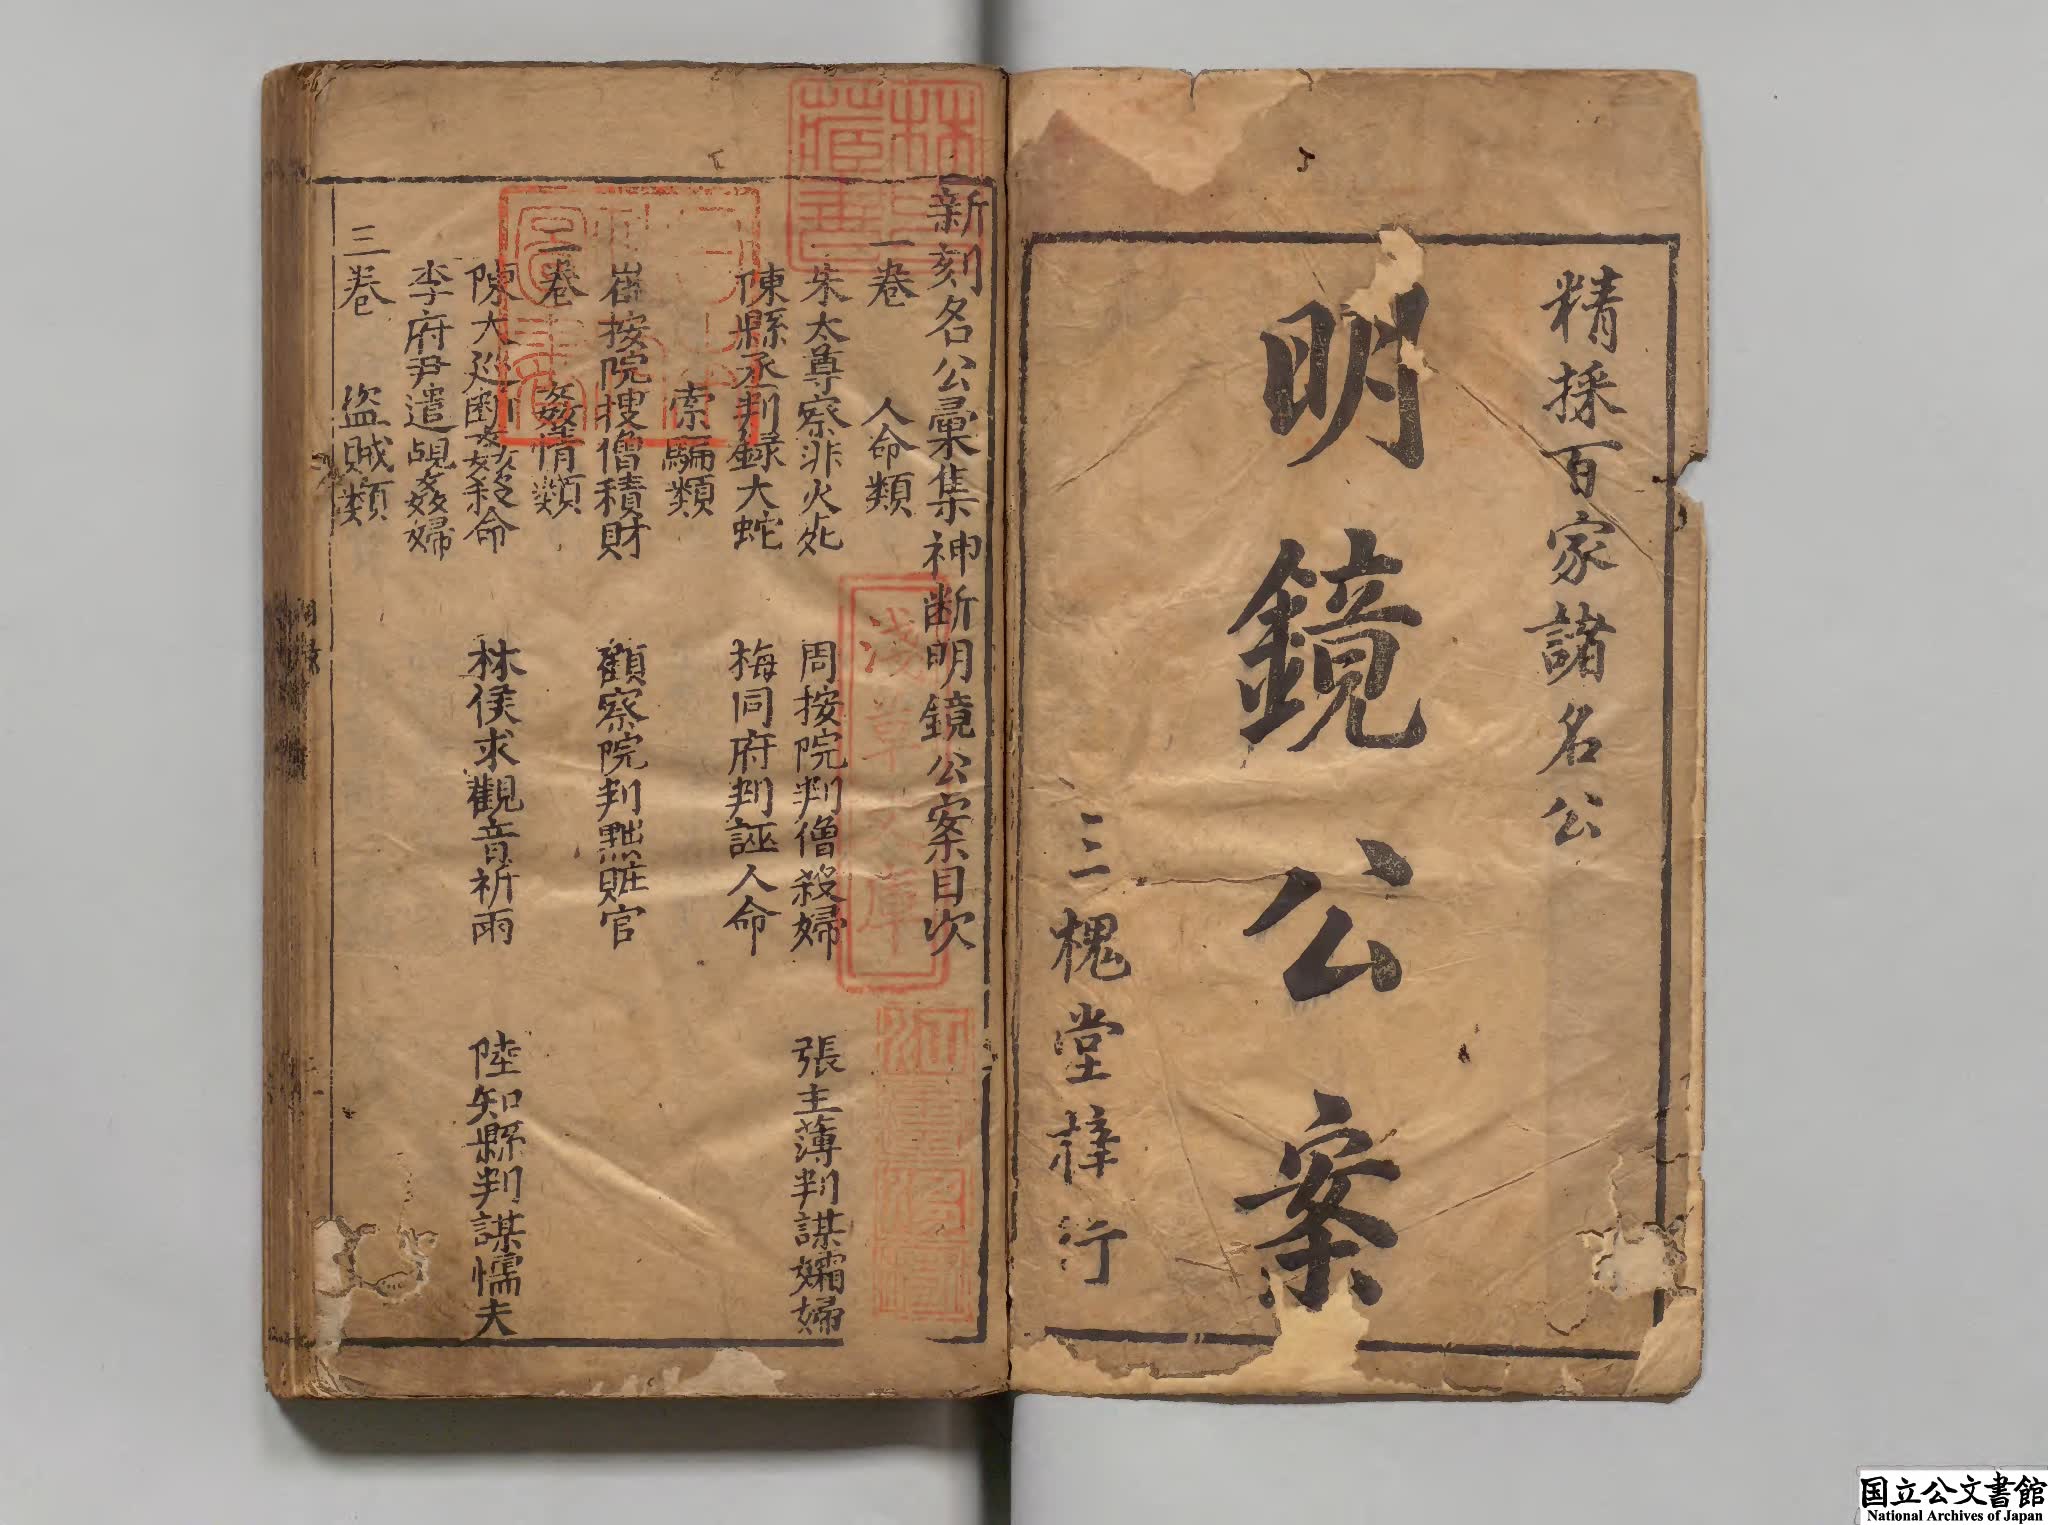 精採百家諸名公
明鏡公案
三槐堂梓行
新刻名公彙集神断明鏡公案目次
一卷 人命類
朱太尊察非火死 周按院判僧殺婦 張主薄判謀孀婦
陳縣丞判錄大蛇 梅同府判誣人命
索騙類
崔按院搜僧積財 顧察院判黜贓官
二卷 姦情類
陳大巡断姦殺命 林侯求觀音祈雨 陸知縣判謀懦夫
李府尹遣覘姦婦
三卷 盜賊類
林氏藏書
淺草文庫
国立公文書館
National Archives of Japan